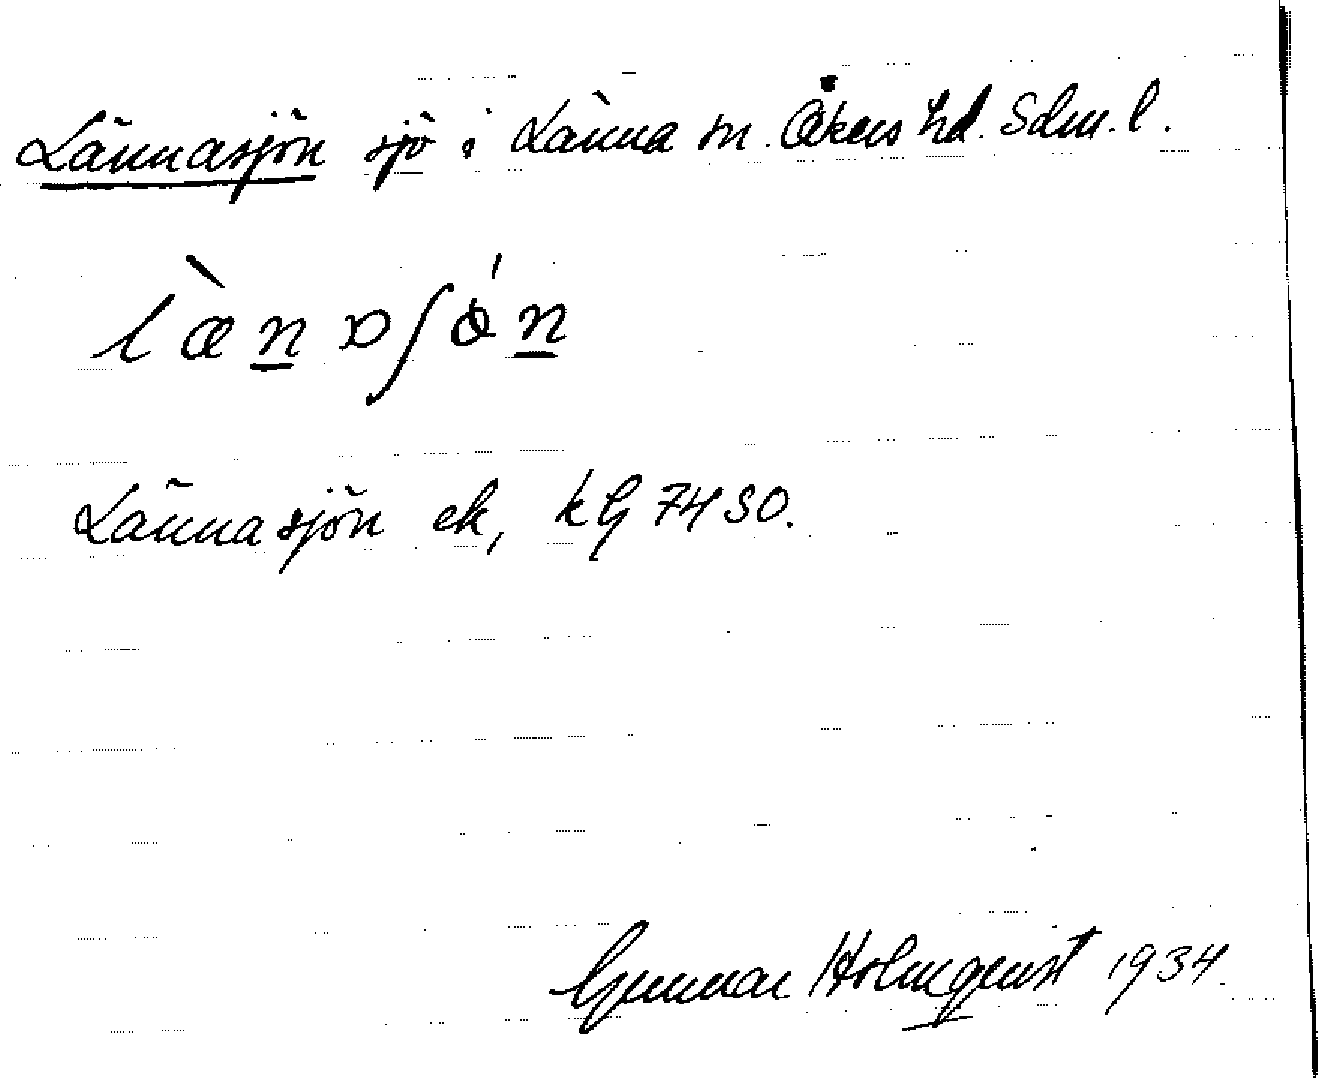 Lännasjön sjö i Länna sn. Åkers hd. Sdm. l.
l æ̀ n ɒ ʃ ǿ n
Lännasjön ek, kG 7430.
Gunnar Holmqvist 1934.